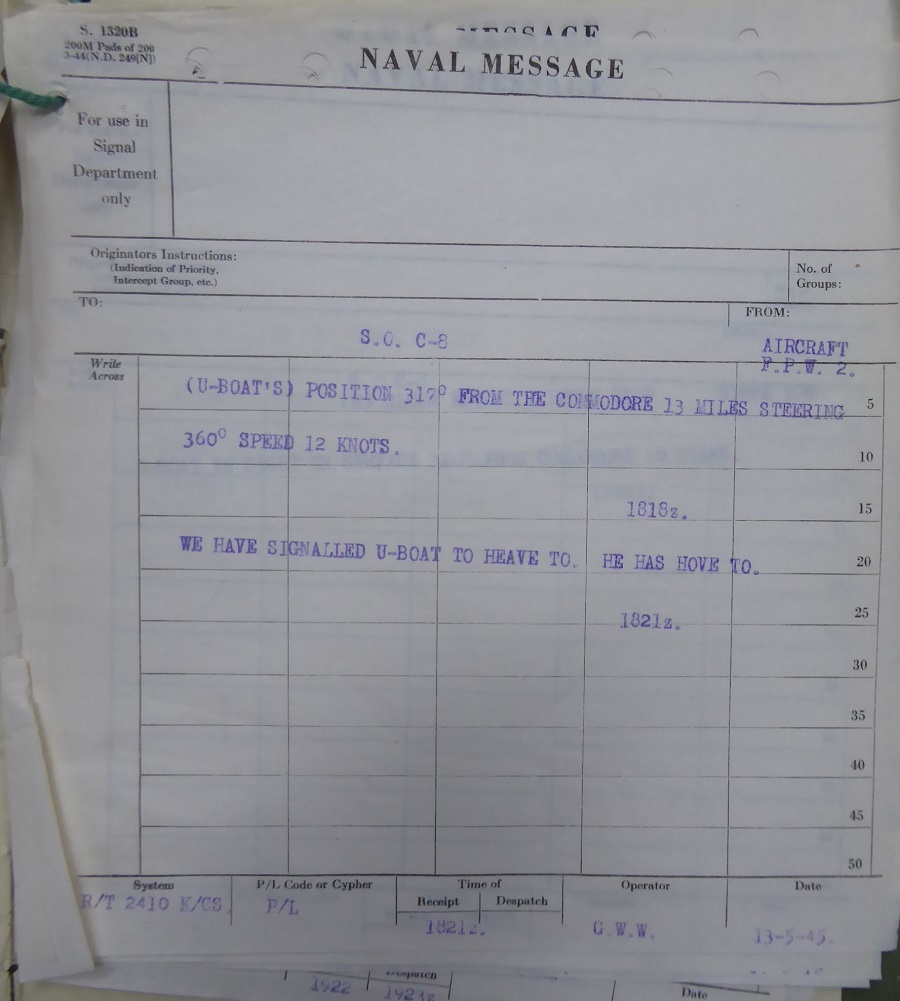 S. 1320B
200M Pads of 200
3-44(N.D. 249[N])
NAVAL MESSAGE
For use in
Signal
Department
only
Originators Instructions:
(Indication of Priority,
Intercept Group, etc.)
No. of
Groups:
TO:
FROM:
S.O. C-8
AIRCRAFT
F.P.W. 2.
Write
Across
(U-BOAT'S) POSITION 317° FROM THE COMMODORE 13 MILES STEERING
5
360° SPEED 12 KNOTS.
10
1818z.
15
WE HAVE SIGNALLED U-BOAT TO HEAVE TO. HE HAS HOVE TO.
20
1821z.
25
30
35
40
45
50
System
P/L Code or Cypher
Time of
Operator
Date
Receipt
Despatch
R/T 2410 K/CS.
P/L
1821z.
G.W.W.
13-5-45.
Despatch
1922
1923z
Date